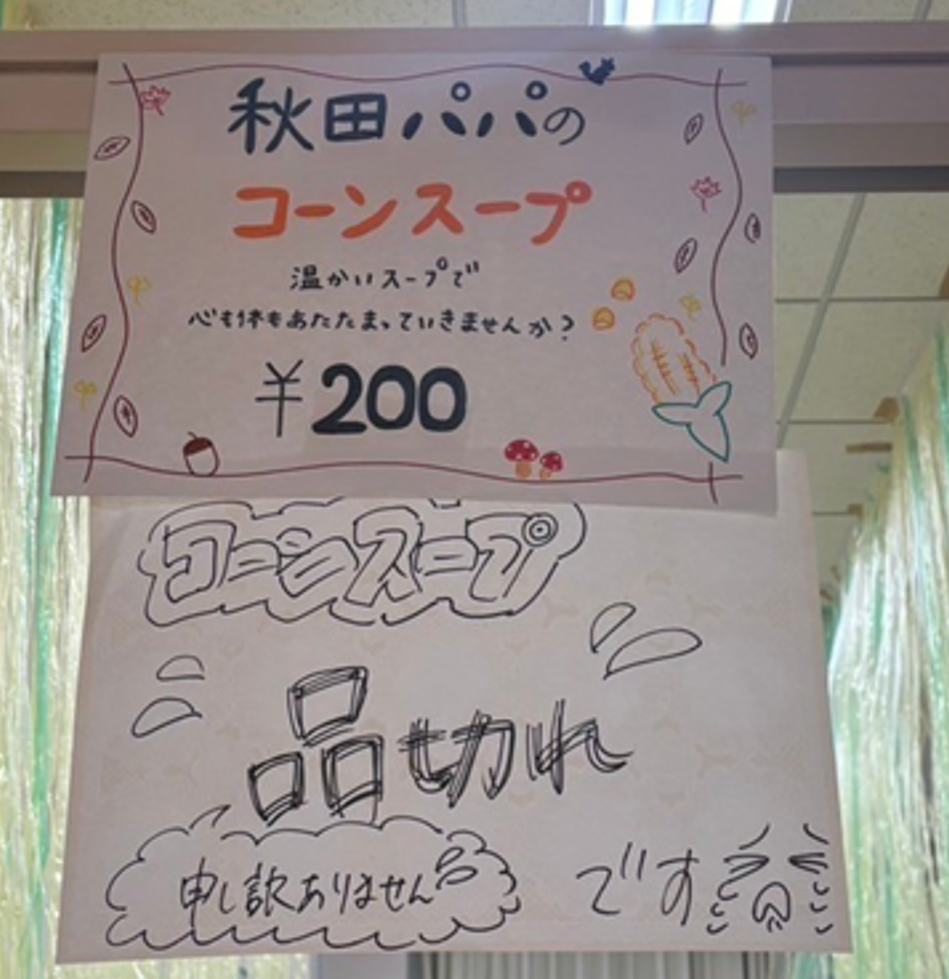 秋田パパの
コーンスープ
温かいスープで
心も体もあたたまっていきませんか？
￥200
コーンスープ
品切れ
です
申し訳ありません